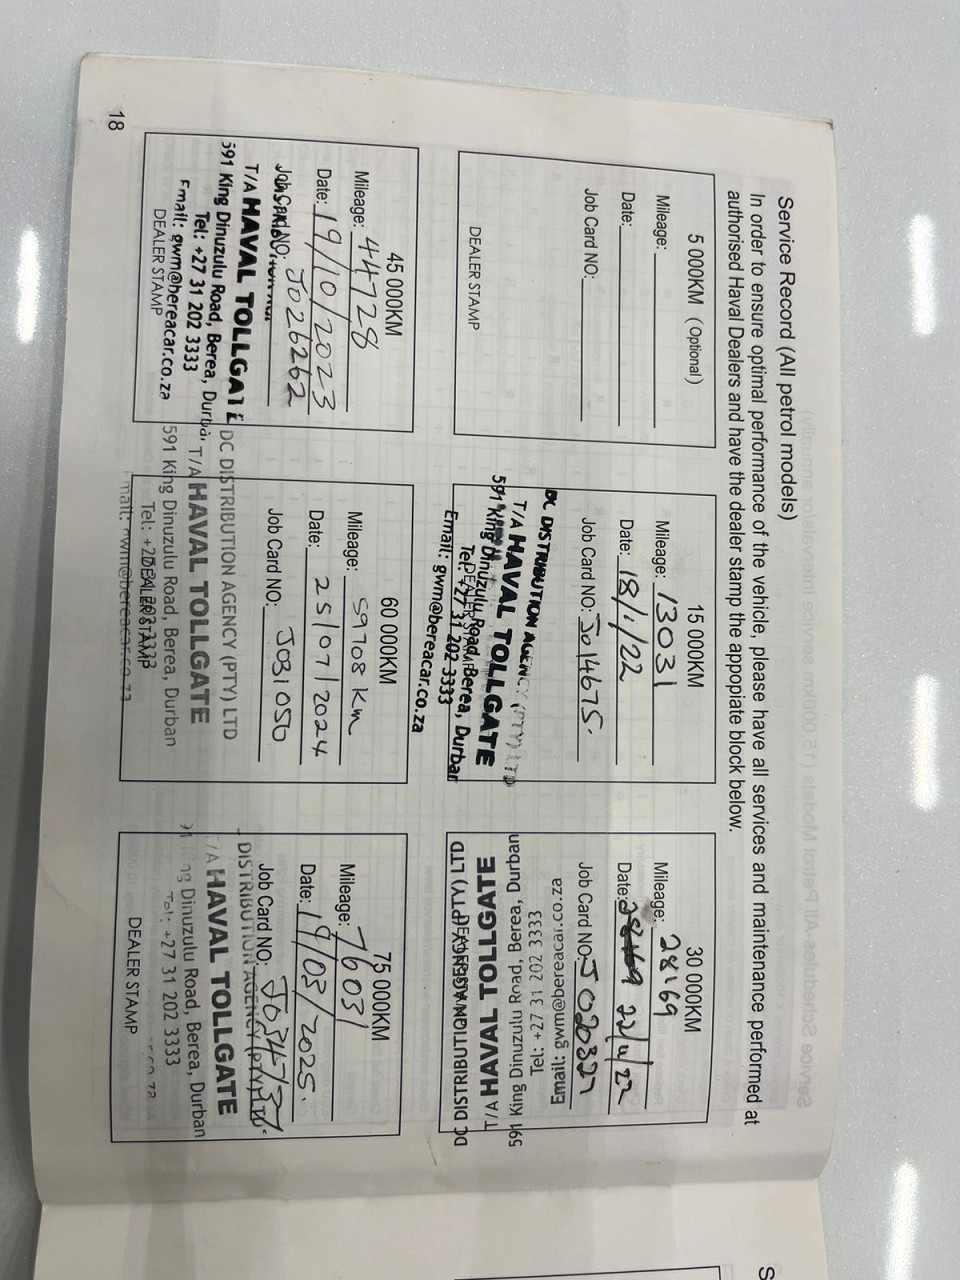 Service Record (All petrol models)
In order to ensure optimal performance of the vehicle, please have all services and maintenance performed at
authorised Haval Dealers and have the dealer stamp the appopiate block below.
5 000KM (Optional)
Mileage:
Date:
Job Card NO:
DEALER STAMP
15 000KM
Mileage: 13031
Date: 18/1/22
Job Card NO: J014675.
DC DISTRIBUTION AGENCY (PTY) LTD
T/A HAVAL TOLLGATE
591 King Dinuzulu Road, Berea, Durban
DEALER STAMP
Tel: +27 31 202 3333
Email: gwm@bereacar.co.za
30 000KM
Mileage: 28169
Date: 22/11/22
Job Card NO: J020327
Email: gwm@bereacar.co.za
Tel: +27 31 202 3333
591 King Dinuzulu Road, Berea, Durban
T/A HAVAL TOLLGATE
DC DISTRIBUTION AGENCY (PTY) LTD
DEALER STAMP
45 000KM
Mileage: 44728
Date: 19/10/2023
Job Card NO: J026262
T/A HAVAL TOLLGATE
591 King Dinuzulu Road, Berea, Durban
Tel: +27 31 202 3333
Email: gwm@bereacar.co.za
DEALER STAMP
60 000KM
Mileage: 59708 Km
Date: 25/07/2024
Job Card NO: J031050
DC DISTRIBUTION AGENCY (PTY) LTD
T/A HAVAL TOLLGATE
591 King Dinuzulu Road, Berea, Durban
Tel: +27 31 202 3333
DEALER STAMP
Email: gwm@bereacar.co.za
75 000KM
Mileage: 76031
Date: 19/03/2025.
Job Card NO:
DISTRIBUTION AGENCY (PTY) LTD
T/A HAVAL TOLLGATE
King Dinuzulu Road, Berea, Durban
Tel: +27 31 202 3333
DEALER STAMP
18